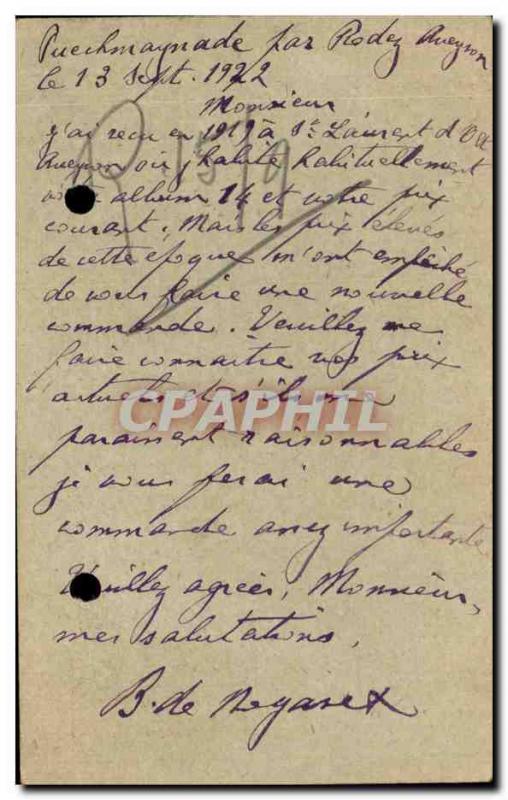 Puechmaynade par Rodez Aveyron
le 13 Sept. 1922
Monsieur
j'ai reçu en 1919 à St. Laurent d'Olt
Aveyron où j'habite habituellement
album 14 et votre prix
courant, Mais les prix élevés
de cette époque m'ont empêché
de vous faire une nouvelle
commande. Veuillez me
faire connaître vos prix
actuels et s'ils me
CPAPHIL
paraissent raisonnables
je vous ferai une
commande assez importante
Veuillez agréer, Monsieur,
mes salutations,
B. de